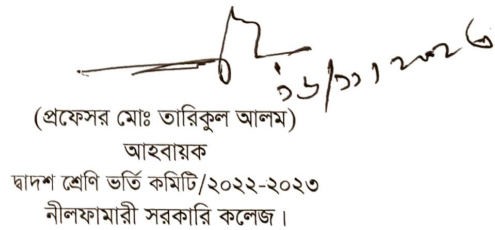 ১৬/১১/২০২৩
(প্রফেসর মোঃ তারিকুল আলম)
আহবায়ক
দ্বাদশ শ্রেণি ভর্তি কমিটি/২০২২-২০২৩
নীলফামারী সরকারি কলেজ।